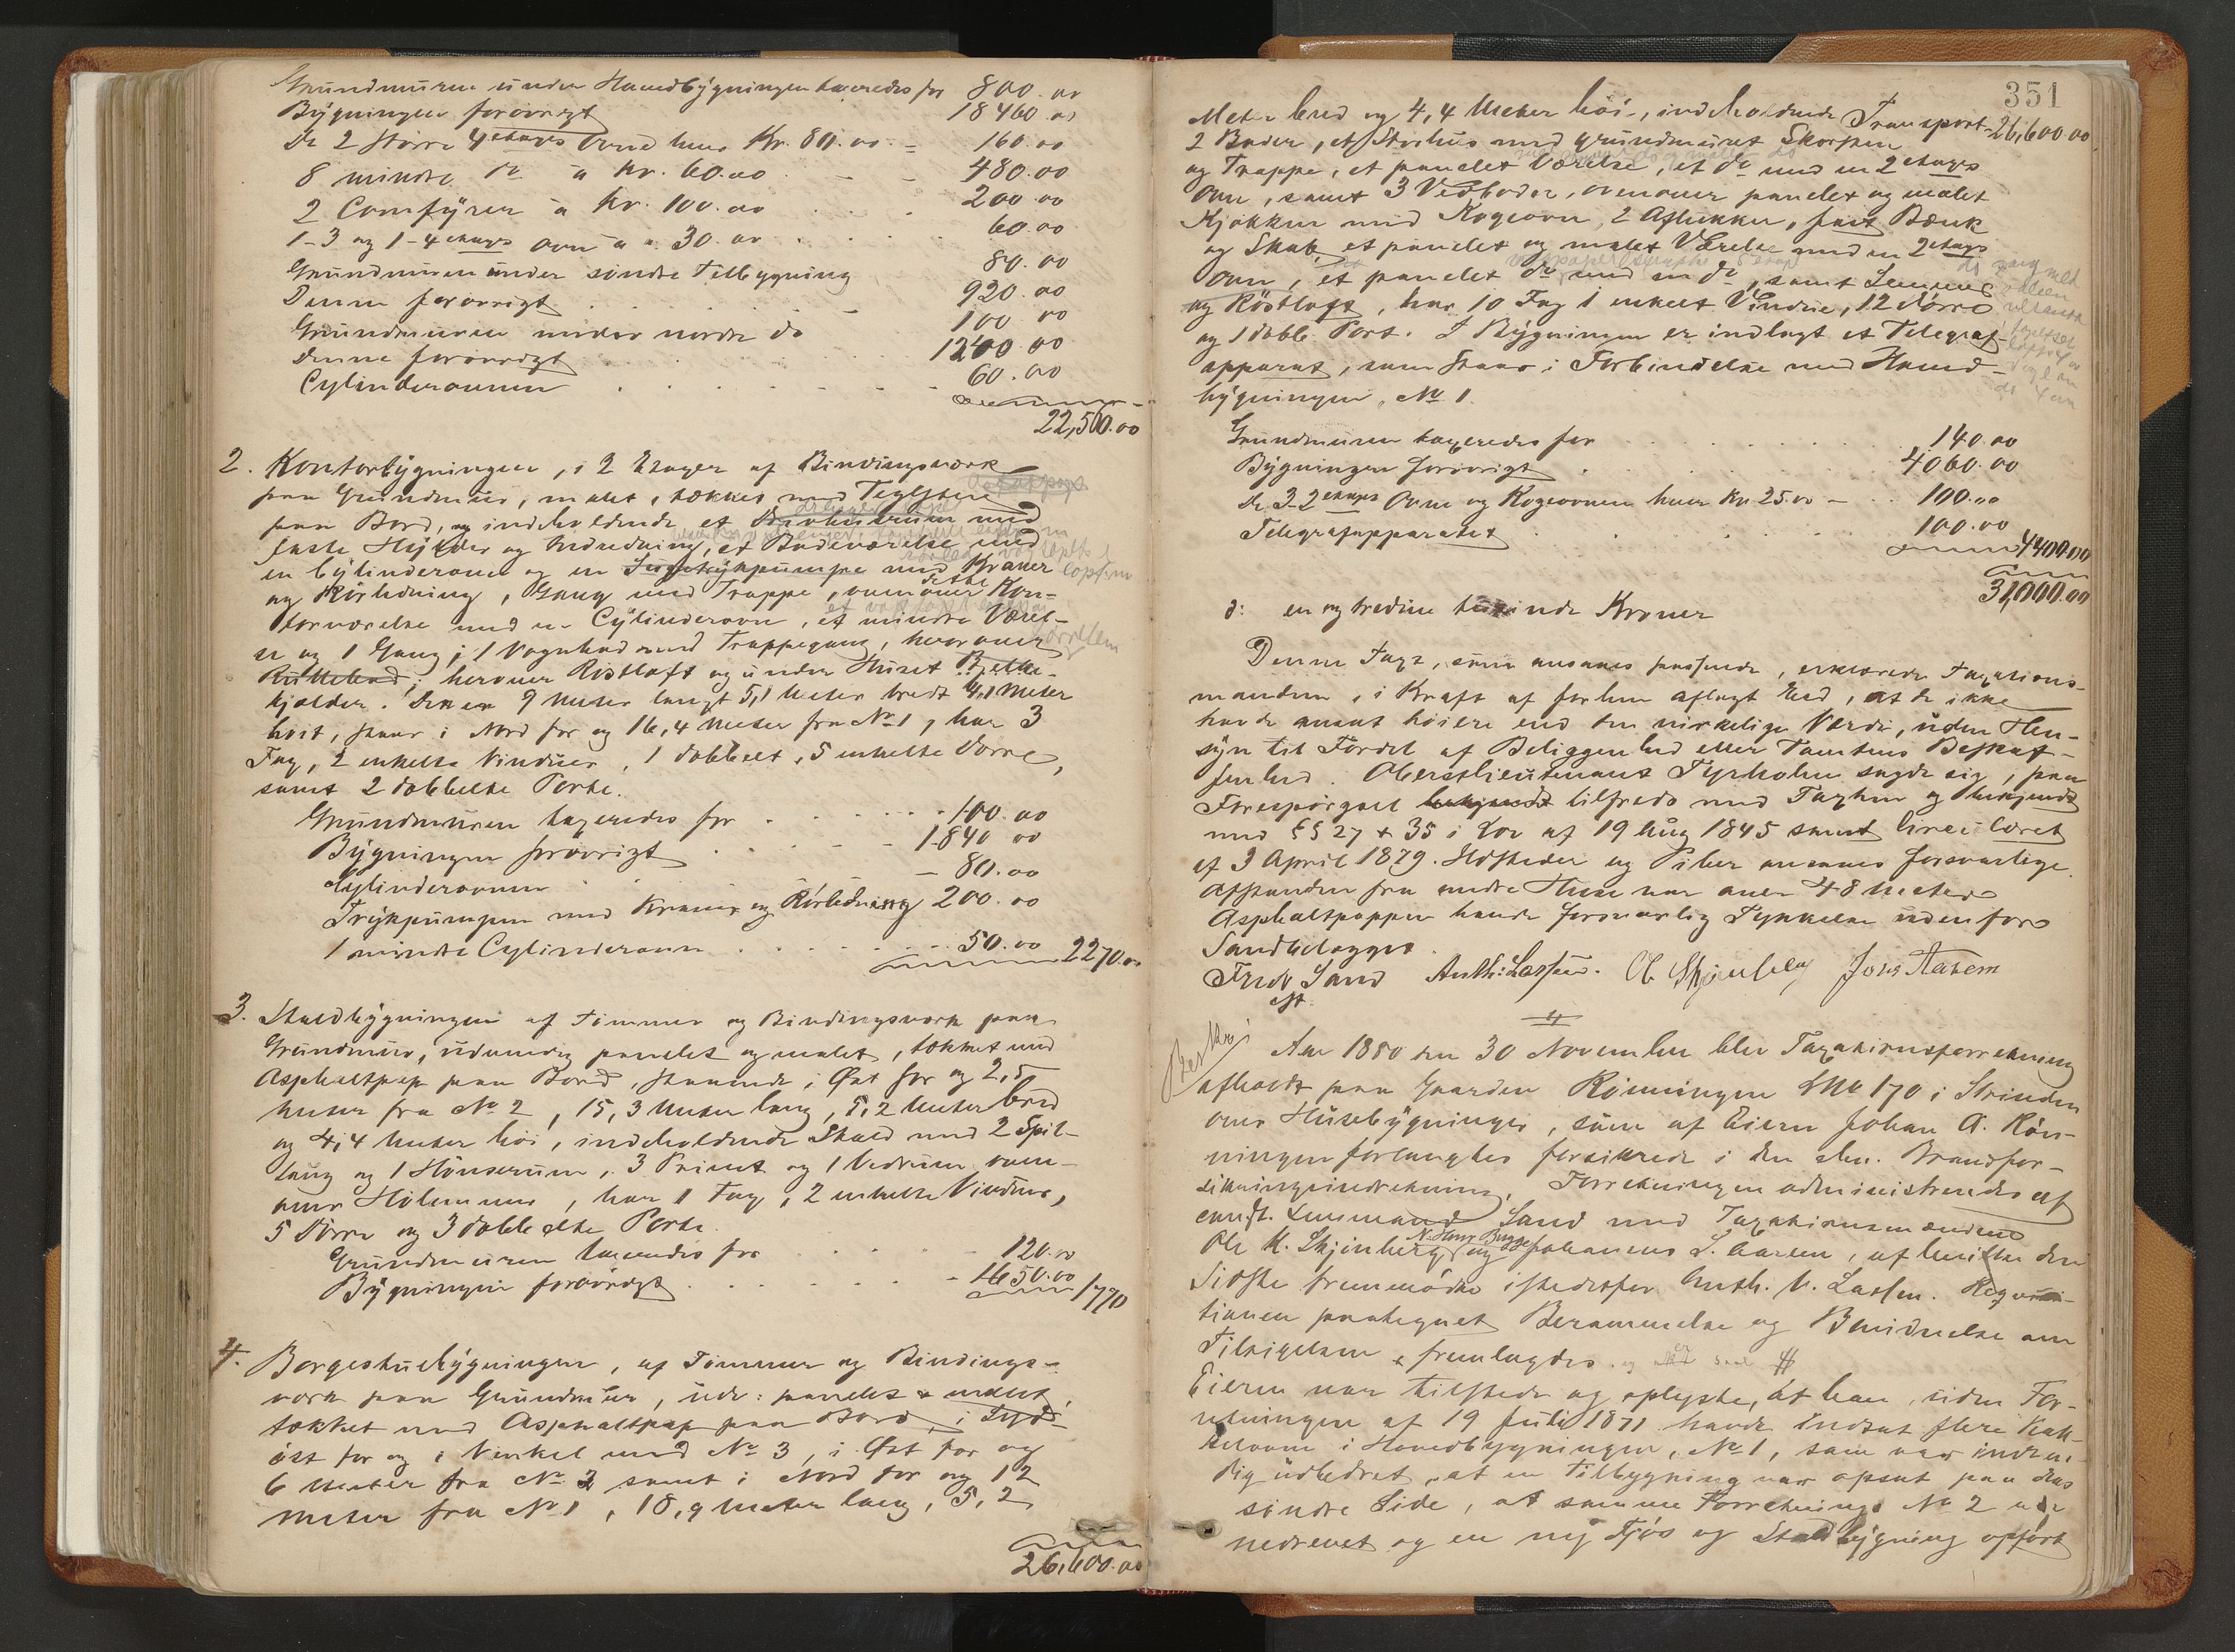 Grundmuren under Hovedbygningen taxeredes for 800.00
Bygningen forøvrigt 18460.00
De 2 større 4 etages Ovne hver Kr. 80.00 = 160.00
8 mindre do a Kr. 60.00 - - 480.00
2 Comfyrer a Kr. 100.00 . . . 200.00
1-3 og 1-4 etages ovn a " 30.00 . . . 60.00
Grundmuren under søndre Tilbygning 80.00
Denne forøvrigt . . . . 920.00
Grundmuren under nordre do 100.00
Denne forøvrigt . . . . 1200.00
Cylinderovnen . . . . . 60.00
22,500.00
2. Kontorbygningen, i 2 Etager af Bindingsværk
paa Grundmur, malet, tækket med Teglsteen
paa Bord, og indeholdende et med
faste Hylder og Indredning, et Badeværelse med
en Cylinderovn og en Sugetrykpumpe med Kraner
og Rørledning, Gang med Trappe, ovenover Kon-
torværelse med en Cylinderovn, et mindre Værel-
se og 1 Gang; 1 Vognbod med Trappegang, hvorover
Rullebod; herover Röstloft og under Huset
kjælder. Den er 9 Meter langt 5,1 Meter bredt 4,1 Meter
høit, staar i Nord for og 16,4 Meter fra No 1, har 3
Fag, 2 enkelte Vinduer, 1 dobbelt, 5 enkelte Dørre,
samt 2 dobbelte Porte.
Grundmuren taxeredes for . . . . 100.00
Bygningen forøvrigt . . . . 1840.00
Cylinderovnen . . . 80.00
Trykpumpen med Kraner og Rørledning 200.00
1 mindre Cylinderovn . . . . 50.00 2270.00
3. Staldbygningen af Tømmer og Bindingsværk paa
Grundmur, udvendig panelet og malet, tækket med
Asphaltpap paa Bord, staaende i Øst for og 2,5
Meter fra No 2, 15,3 Meter lang, 5,2 Meter bred
og 4,4 Meter høi, indeholdende Stald med 2 Spil-
taug og 1 Hönserum, 3 Privet og 1 Vedrum, oven-
over Hölemmer, har 1 Fag, 2 enkelte Vinduer,
5 Dørre og 3 dobbelte Porte.
Grundmuren taxeredes for . . . . 120.00
Bygningen forøvrigt . . . . 1650.00 1770
4. Borgestuebygningen, af Tømmer og Bindings-
værk paa Grundmur, udv: panelet & malet,
tækket med Asphaltpap paa Bord, i Syd-
øst for og i Vinkel med No 3, i Øst for og
6 Meter fra No 2 samt i Nord for og 12
Meter fra No 1, 18,9 Meter lang, 5,2
26,600.00
351
Meter bred og 4,4 Meter høi, indeholdende Transport 26,600.00
2 Boder, et Storhus med grundmuret Skorsten
og Trappe, et panelet Værelse, et do med en 2 etages
Ovn, samt 3 Vedboder, ovenover panelet og malet
Kjøkken med Kogeovn, 2 Aflukker, fast Bænk
og Skab, et panelet og malet Værelse med en 2 etages
ovn, et panelet do med en do, samt
og Röstloft, har 10 Fag 1 enkelt Vindue, 12 Dørre
og 1 dobb. Port. I Bygningen er indlagt et Telegraf-
apparat, som staar i Forbindelse med Hoved-
bygningen, No 1.
Grundmuren taxeredes for . . . . 140.00
Bygningen forøvrigt . . . . 4060.00
De 3-2 etages Ovne og Kogeovnen hver Kr. 25.00 - . . 100.00
Telegrafapparatet . . . . 100.00
4400.00
31,000.00
ɔ: en og tredive tusinde Kroner
Denne Taxt, som ansaaes passende, erklærede Taxations-
mændene, i Kraft af forhen aflagt Eed, at de ikke
havde ansat høiere end den virkelige Værdi, uden Hen-
syn til Fordel af Beliggenhed eller Tomtens Beskaf-
fenhed. Oberstlieutenant Tyrholm sagde sig, paa
Forespørgsel bekjendt tilfreds med Taxten og bekjendt
med §§ 27 & 35 i Lov af 19 Aug 1845 samt Circulæret
af 3 April 1879. Ildsteder og Piber ansaaes forsvarlige.
Afstanden fra andre Huse var over 48 Meter
Asphaltpappen havde forsvarlig Tykkelse udenfor
Sandbelægget.
Fredr Sand Anth: Lassen. O Skjenberg Johs Aarem
cst.
Aar 1880 den 30 November blev Taxationsforretning
afholdt paa Gaarden Rönningen LNo 170 i Strinden
over Husebygninger, som af Eieren Johan A. Rön-
ningen forlangtes forsikrede i den alm. Brandfor-
sikringsindretning. Forretningen administreredes af
const. Lensmand Sand med Taxationsmændene
N. Jan Bugge
Ole K. Skjenberg og Johannes L. Aarem, af hvilke den
Sidste fremmødte istedetfor Anth. V. Lassen. Reqvisi-
tionen paategnet Berammelse og Beviidnelse om
Tilsigelsen, fremlagdes.
Eieren var tilstede og oplyste, at han, siden For-
retningen af 19 Juli 1871 havde indsat flere Kak-
kelovne i Hovedbygningen, No 1, som var indven-
dig udbedret, at en Tilbygning var opsat paa dens
søndre Side, at samme Forretnings No 2 var
nedrevet og en ny Fjös og Staldbygning opført